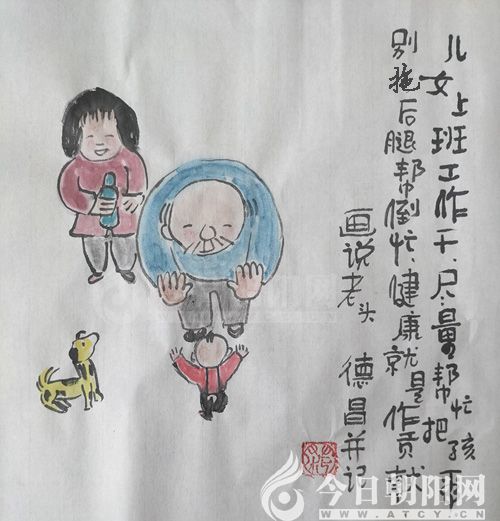 儿女上班工作干、尽量帮忙把孩
别拖后腿帮倒忙、健康就是作贡献
画说老头 德昌并记
今日朝阳网
WWW.ATCY.CN